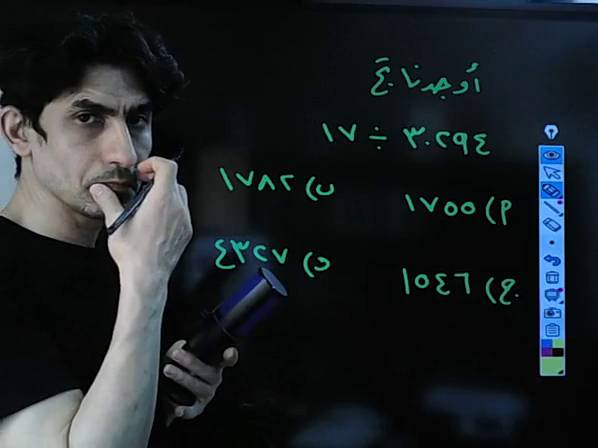 أوجد ناتج
٣٠٢٩٤ ÷ ١٧
أ) ١٧٥٥
ب) ١٧٨٢
ج) ١٥٤٦
د) ٤٣٢٧